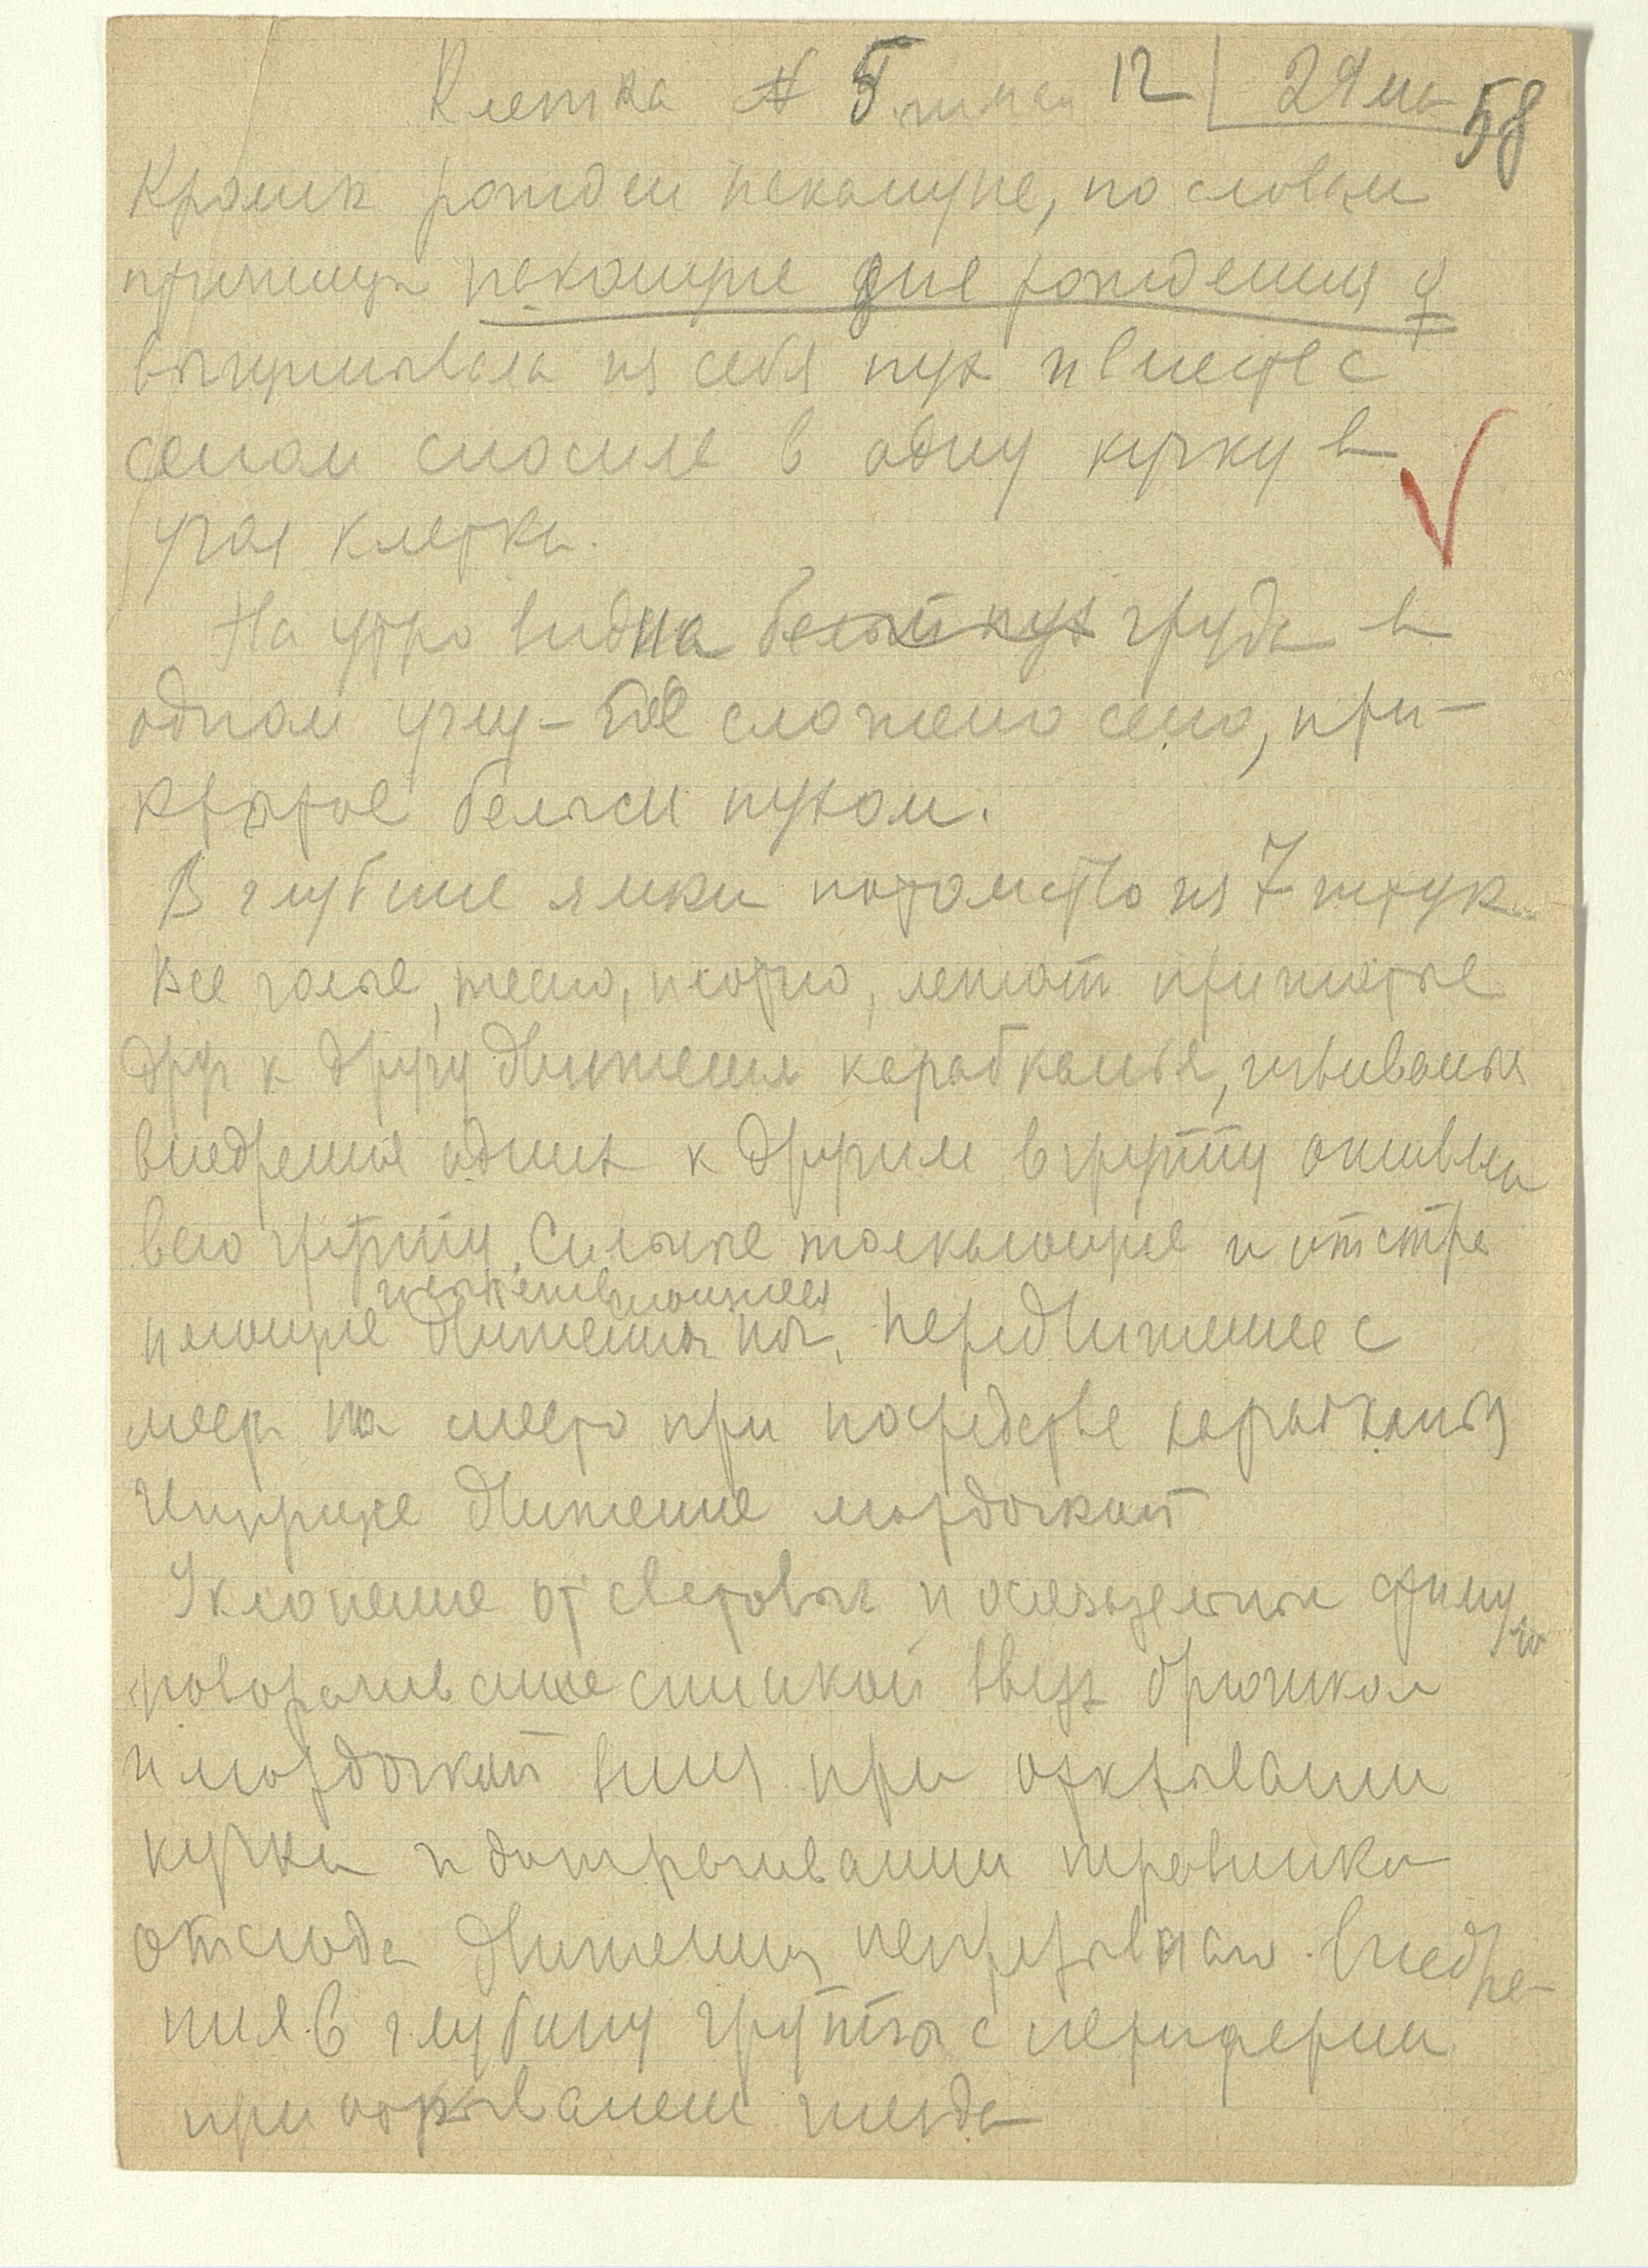 Клетка № 5 12 | 29 ма
58
Кролик рожден накануне, по словам
накануне дня рождения ♀
выщипывала из себя пух и вместе с
сеном сносила в одну кучку в
углах клетки.
На утро видна белый пух груда в
одном углу – где сложено сено, при-
крытое белым пухом.
В глубине ямки потомство из 7 штук
Все голые, тесно, плотно, лежат прижатые
друг к другу движения карабканья,
внедрения одних к другим в группу
всю группу. Сильные толкающие и
движения ног. Передвижение с
места на место при посредстве карабканья
движение мордочкой
Уклонение от световых и осязательных
поворачивание спинкой вверх брюшком
и мордочкой вниз при открывании
кучки и дотрагивании травинки
отсюда движения непрерывного внедре-
ния в глубину группы с периферии
при открывании гнезда